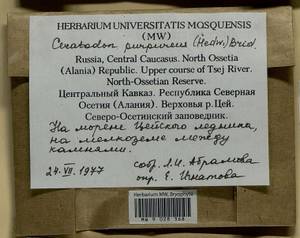 HERBARIUM UNIVERSITATIS MOSQUENSIS
(MW)
Ceratodon purpureus (Hedw.) Brid.
Russia, Central Caucasus. North Ossetia
(Alania) Republic. Upper course of Tsej River.
North-Ossetian Reserve.
Центральный Кавказ. Республика Северная
Осетия (Алания). Верховья р.Цей.
Северо-Осетинский заповедник.
На морене Цейского ледника,
на мелкоземе между
камнями.
24.VII.1977
собр. Л.И. Абрамова
опр. Е. Игнатова
Herbarium MW, Bryophyte